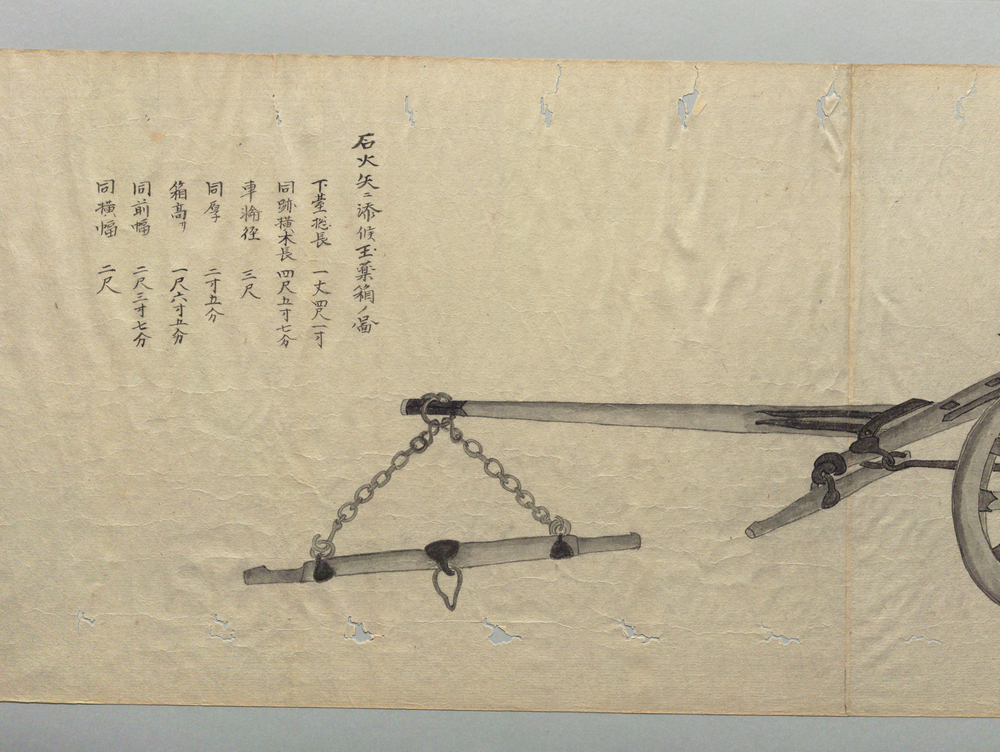 石火矢ニ添候玉薬箱ノ啚
下臺惣長 一丈四尺一寸
同跡横木長 四尺五寸七分
車輪径 三尺
同厚 二寸五分
箱高サ 一尺六寸五分
同前幅 二尺三寸七分
同横幅 二尺